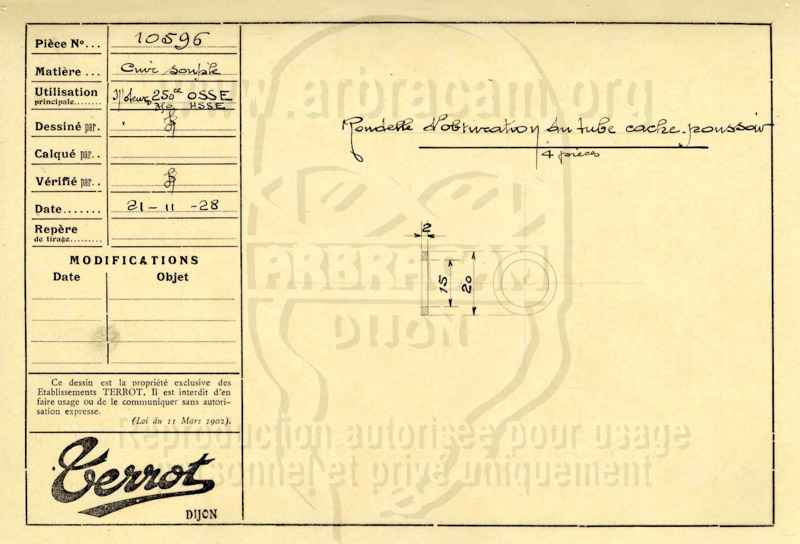 Pièce Nº... 10596
Matière... Cuir souple
Utilisation principale........ Moteurs 250cc OSSE
350 HSSE
Dessiné par.
Calqué par..
Vérifié par..
Date....... 21-11-28
Repère de tirage.........
MODIFICATIONS
Date Objet
Ce dessin est la propriété exclusive des
Etablissements TERROT. Il est interdit d'en
faire usage ou de le communiquer sans autori-
sation expresse.
(Loi du 11 Mars 1902).
Terrot
DIJON
www.arbracam.org
Rondelle d'obturation du tube cache-poussoir
4 pièces
2
15
20
ARBRACAM
DIJON
Reproduction autorisée pour usage
personnel et privé uniquement